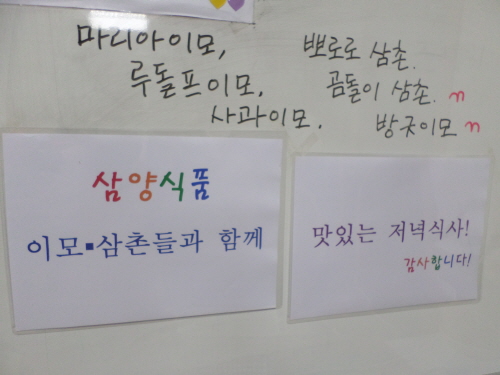 마리아이모,
루돌프이모,
사과이모,
뽀로로 삼촌.
곰돌이 삼촌. ㅋ
방굿이모 ㅋ
삼양식품
이모▪삼촌들과 함께
맛있는 저녁식사!
감사합니다!